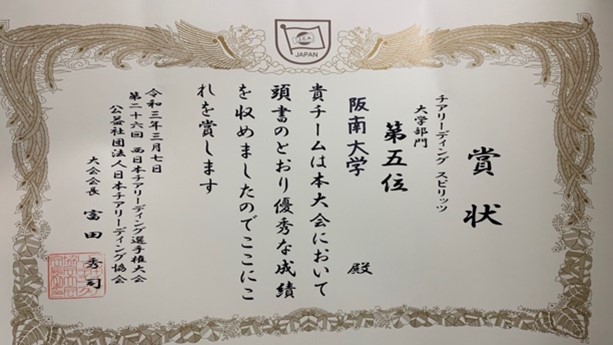 JAPAN
賞状
チアリーディング スピリッツ
大学部門
第五位
阪南大学 殿
貴チームは本大会において
頭書のとおり優秀な成績
を収めましたのでここにこ
れを賞します
令和三年三月七日
第二十六回 西日本チアリーディング選手権大会
公益社団法人日本チアリーディング協会
大会会長 富田 秀司